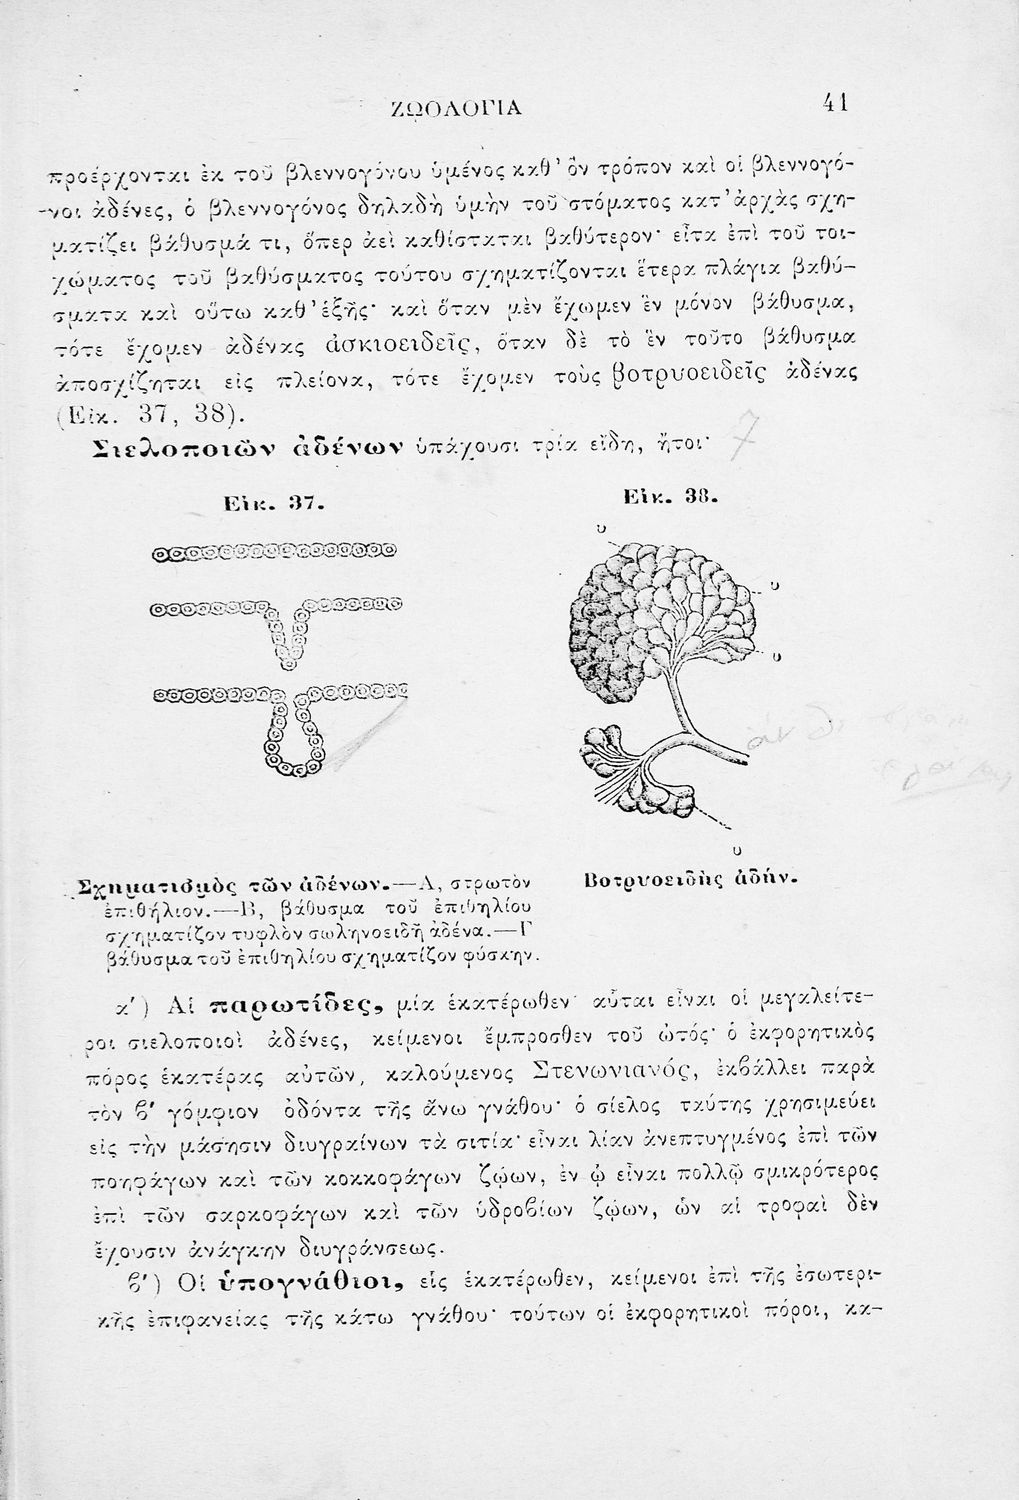 ΖΩΟΛΟΓΙΑ 41
προέρχονται ἐκ τοῦ βλεννογόνου ὑμένος καθ’ ὃν τρόπον καὶ οἱ βλεννογό-
νοι ἀδένες, ὁ βλεννογόνος δηλαδὴ ὑμὴν τοῦ στόματος κατ’ ἀρχὰς σχη-
ματίζει βάθυσμά τι, ὅπερ ἀεὶ καθίσταται βαθύτερον· εἶτα ἐπὶ τοῦ τοι-
χώματος τοῦ βαθύσματος τούτου σχηματίζονται ἕτερα πλάγια βαθύ-
σματα καὶ οὕτω καθ’ ἑξῆς· καὶ ὅταν μὲν ἔχωμεν ἓν μόνον βάθυσμα,
τότε ἔχομεν ἀδένας ἀσκιοειδεῖς, ὅταν δὲ τὸ ἓν τοῦτο βάθυσμα
ἀποσχίζηται εἰς πλείονα, τότε ἔχομεν τοὺς βοτρυοειδεῖς ἀδένας
(Εἰκ. 37, 38).
Σιελοποιῶν ἀδένων ὑπάχουσι τρία εἴδη, ἤτοι·
Εἰκ. 37.
Εἰκ. 38.
υ
υ
υ
υ
Σχηματισμὸς τῶν ἀδένων.—Α, στρωτὸν
ἐπιθήλιον.—Β, βάθυσμα τοῦ ἐπιθηλίου
σχηματίζον τυφλὸν σωληνοειδῆ ἀδένα.—Γ
βάθυσμα τοῦ ἐπιθηλίου σχηματίζον φύσκην.
Βοτρυοειδὴς ἀδήν.
α′) Αἱ παρωτίδες, μία ἑκατέρωθεν· αὗται εἶναι οἱ μεγαλείτε-
ροι σιελοποιοὶ ἀδένες, κείμενοι ἔμπροσθεν τοῦ ὠτός· ὁ ἐκφορητικὸς
πόρος ἑκατέρας αὐτῶν, καλούμενος Στενωνιανός, ἐκβάλλει παρὰ
τὸν β′ γόμφιον ὀδόντα τῆς ἄνω γνάθου· ὁ σίελος ταύτης χρησιμεύει
εἰς τὴν μάσησιν διυγραίνων τὰ σιτία· εἶναι λίαν ἀνεπτυγμένος ἐπὶ τῶν
ποηφάγων καὶ τῶν κοκκοφάγων ζῴων, ἐν ᾧ εἶναι πολλῷ σμικρότερος
ἐπὶ τῶν σαρκοφάγων καὶ τῶν ὑδροβίων ζῴων, ὧν αἱ τροφαὶ δὲν
ἔχουσιν ἀνάγκην διυγράνσεως.
β′) Οἱ ὑπογνάθιοι, εἷς ἑκατέρωθεν, κείμενοι ἐπὶ τῆς ἐσωτερι-
κῆς ἐπιφανείας τῆς κάτω γνάθου· τούτων οἱ ἐκφορητικοὶ πόροι, κα-